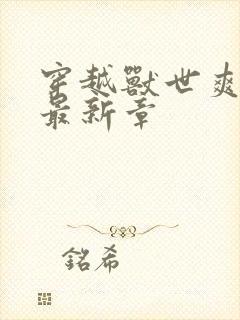 穿越獸世爽
最新章
銘希